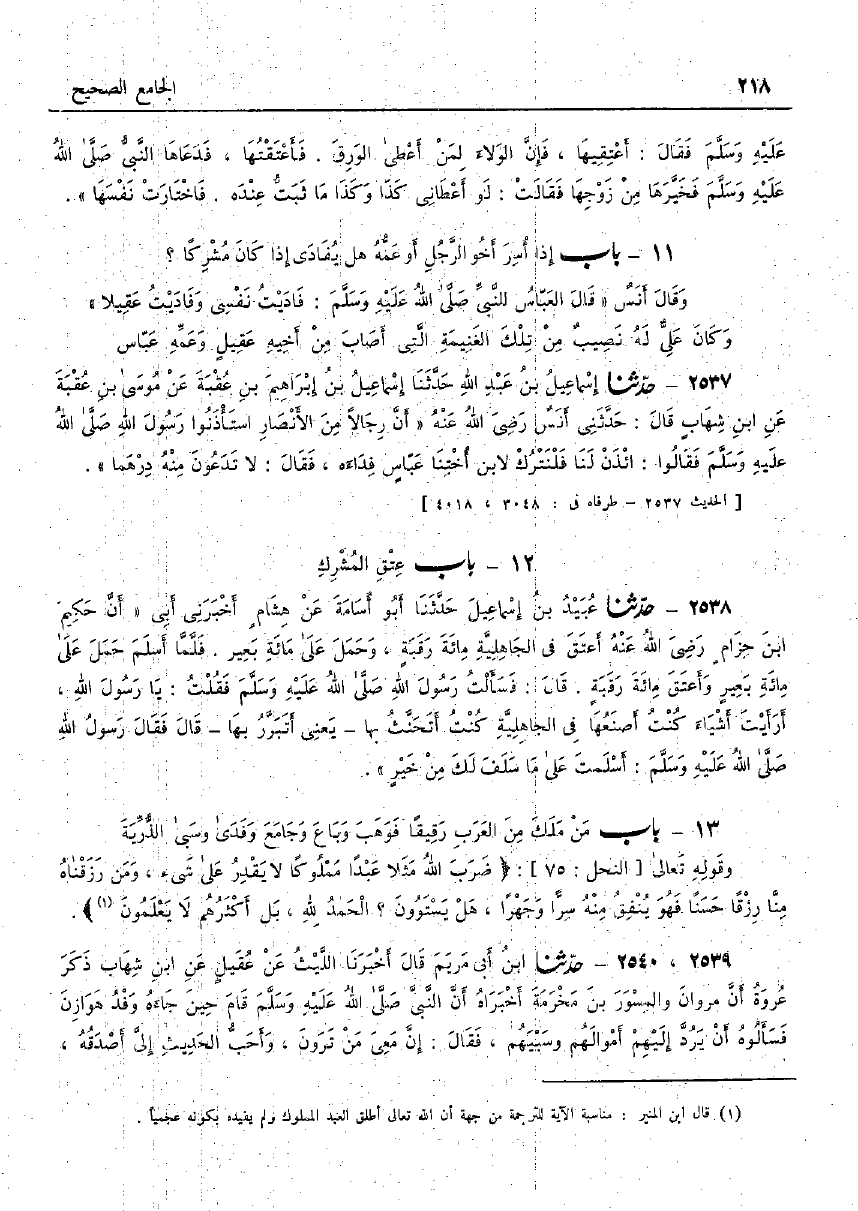 ٢١٨ الجامع الصحيح
عَلَيْهِ وَسَلَّمَ فَقَالَ : أَعْتِقِيهَا ، فَإِنَّ الوَلَاءَ لِمَنْ أَعْطَىٰ الوَرِقَ . فَأَعْتَقْتُهَا ، فَدَعَاهَا النَّبِىُّ صَلَّىٰ اللهُ
عَلَيْهِ وَسَلَّمَ فَخَيَّرَهَا مِنْ زَوْجِهَا فَقَالَتْ : لَو أَعْطَانِى كَذَا وَكَذَا مَا ثَبَتُّ عِنْدَه . فَاخْتَارَتْ نَفْسَهَا » .
١١ - باب إِذا أُسِرَ أَخُو الرَّجُلِ أَو عَمُّهُ هل يُفَادَى إِذا كَانَ مُشْرِكًا ؟
وَقَالَ أَنَسٌ « قَالَ العَبَّاسُ للنَّبِىِّ صَلَّىٰ اللهُ عَلَيْهِ وَسَلَّمَ : فَادَيْتُ نَفْسِى وَفَادَيْتُ عَقِيلا »
وَكَانَ عَلِىٌّ لَهُ نَصِيبٌ مِنْ تِلْكَ الغَنِيمَةِ الَّتِى أَصَابَ مِنْ أَخِيهِ عَقِيلٍ وَعَمِّهِ عَبَّاس
٢٥٣٧ - حدّثنا إِسْمَاعِيلُ بنُ عَبْدِ اللهِ حَدَّثَنَا إِسْمَاعِيلُ بنُ إِبْرَاهِيمَ بنِ عُقْبَةَ عَنْ مُوسَىٰ بنِ عُقْبَةَ
عَنِ ابنِ شِهَابٍ قَالَ : حَدَّثَنِى أَنَسٌ رَضِىَ اللهُ عَنْهُ « أَنَّ رِجَالاً مِنَ الأَنْصَارِ استَأْذَنُوا رَسُولَ اللهِ صَلَّىٰ اللهُ
علَيهِ وَسَلَّمَ فَقَالُوا : ائْذَنْ لَنَا فَلْنَتْرُكْ لابنِ أُخْتِنَا عَبَّاسٍ فِدَاءَه ، فَقَالَ : لا تَدَعُونَ مِنْهُ دِرْهَما » .
[ الحديث ٢٥٣٧ - طرفاه فى : ٣٠٤٨ ، ٤٠١٨ ]
١٢ - باب عِتْقِ المُشْرِكِ
٢٥٣٨ - حدّثنا عُبَيْدُ بنُ إِسْمَاعِيلَ حَدَّثَنَا أَبُو أُسَامَةَ عَنْ هِشَامٍ أَخْبَرَنِى أَبِى « أَنَّ حَكِيمَ
ابنَ حِزَامٍ رَضِىَ اللهُ عَنْهُ أَعتَقَ فى الجَاهِلِيَّةِ مِائَةَ رَقَبَةٍ ، وَحَمَلَ عَلَىٰ مَائَةِ بَعِير . فَلَمَّا أَسلَمَ حَمَلَ عَلَىٰ
مِائَةِ بَعِيرٍ وَأَعتَقَ مِائَةَ رَقَبَةٍ . قَالَ : فَسَأَلْتُ رَسُولَ اللهِ صَلَّىٰ اللهُ عَلَيْهِ وَسَلَّمَ فَقُلْتُ : يَا رَسُولَ اللهِ ،
أَرَأَيْتَ أَشْيَاءَ كُنْتُ أَصنَعُهَا فِى الجَاهِلِيَّةِ كُنْتُ أَتَحَنَّثُ بِها - يَعنِى أَتَبَرَّرُ بهَا - قَالَ فَقَالَ رَسولُ اللهِ
صَلَّىٰ اللهُ عَلَيْهِ وَسَلَّمَ : أَسْلَمتَ عَلَىٰ مَا سَلَفَ لَكَ مِنْ خَيْرٍ » .
١٣ - باب مَنْ مَلَكَ مِنَ العَرَبِ رَقِيقًا فَوَهَبَ وَبَاعَ وَجَامَعَ وَفَدَىٰ وسَبَىٰ الذُّرِّيَّةَ
وقَولِهِ تَعالىٰ [ النحل : ٧٥ ] : ﴿ ضَرَبَ اللهُ مَثَلا عَبْدًا مَمْلُوكًا لا يَقْدِرُ عَلَىٰ شَىء ، وَمَن رَزَقْنَاهُ
مِنَّا رِزْقًا حَسَنًا فَهُوَ يُنْفِقُ مِنْهُ سِرًّا وَجَهْرًا ، هَلْ يَسْتَوُونَ ؟ الحَمدُ لِلهِ ، بَل أَكْثَرُهُم لَا يَعْلَمُونَ (١)﴾ .
٢٥٣٩ ، ٢٥٤٠ - حدّثنا ابنُ أَبى مَريَمَ قَالَ أَخْبَرَنَا اللَّيْثُ عَنْ عُقَيلٍ عَنِ ابنِ شِهَاب ذَكَرَ
عُروَةُ أَنَّ مروانَ والمِسْوَرَ بنَ مَخْرَمَةَ أَخْبَرَاهُ أَنَّ النَّبِىَّ صَلَّىٰ اللهُ عَلَيْهِ وَسَلَّمَ قَامَ حِينَ جَاءَهُ وَفْدُ هَوَازِنَ
فَسَأَلُوهُ أَنْ يَرُدَّ إِلَيْهِمْ أَموالَهُم وسَبْيَهُم ، فَقَالَ : إِنَّ مَعِىَ مَنْ تَرَونَ ، وَأَحَبُّ الحَدِيثِ إِلَىَّ أَصْدَقُهُ ،
(١) قال ابن المنير : مناسبة الآية للترجمة من جهة أن الله تعالى أطلق العبد المملوك ولم يقيده بكونه عجمياً .